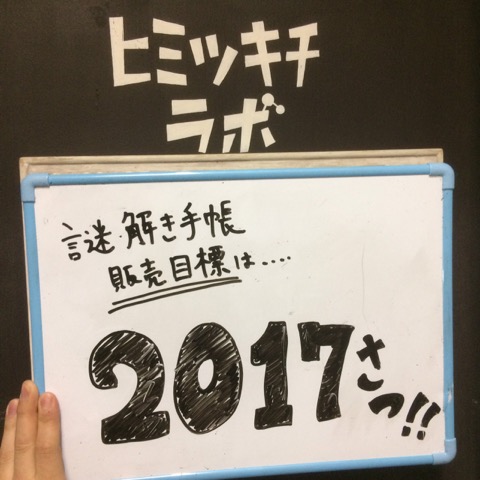 ヒミツキチ
ラボ
謎解き手帳
販売目標は....
2017さつ!!